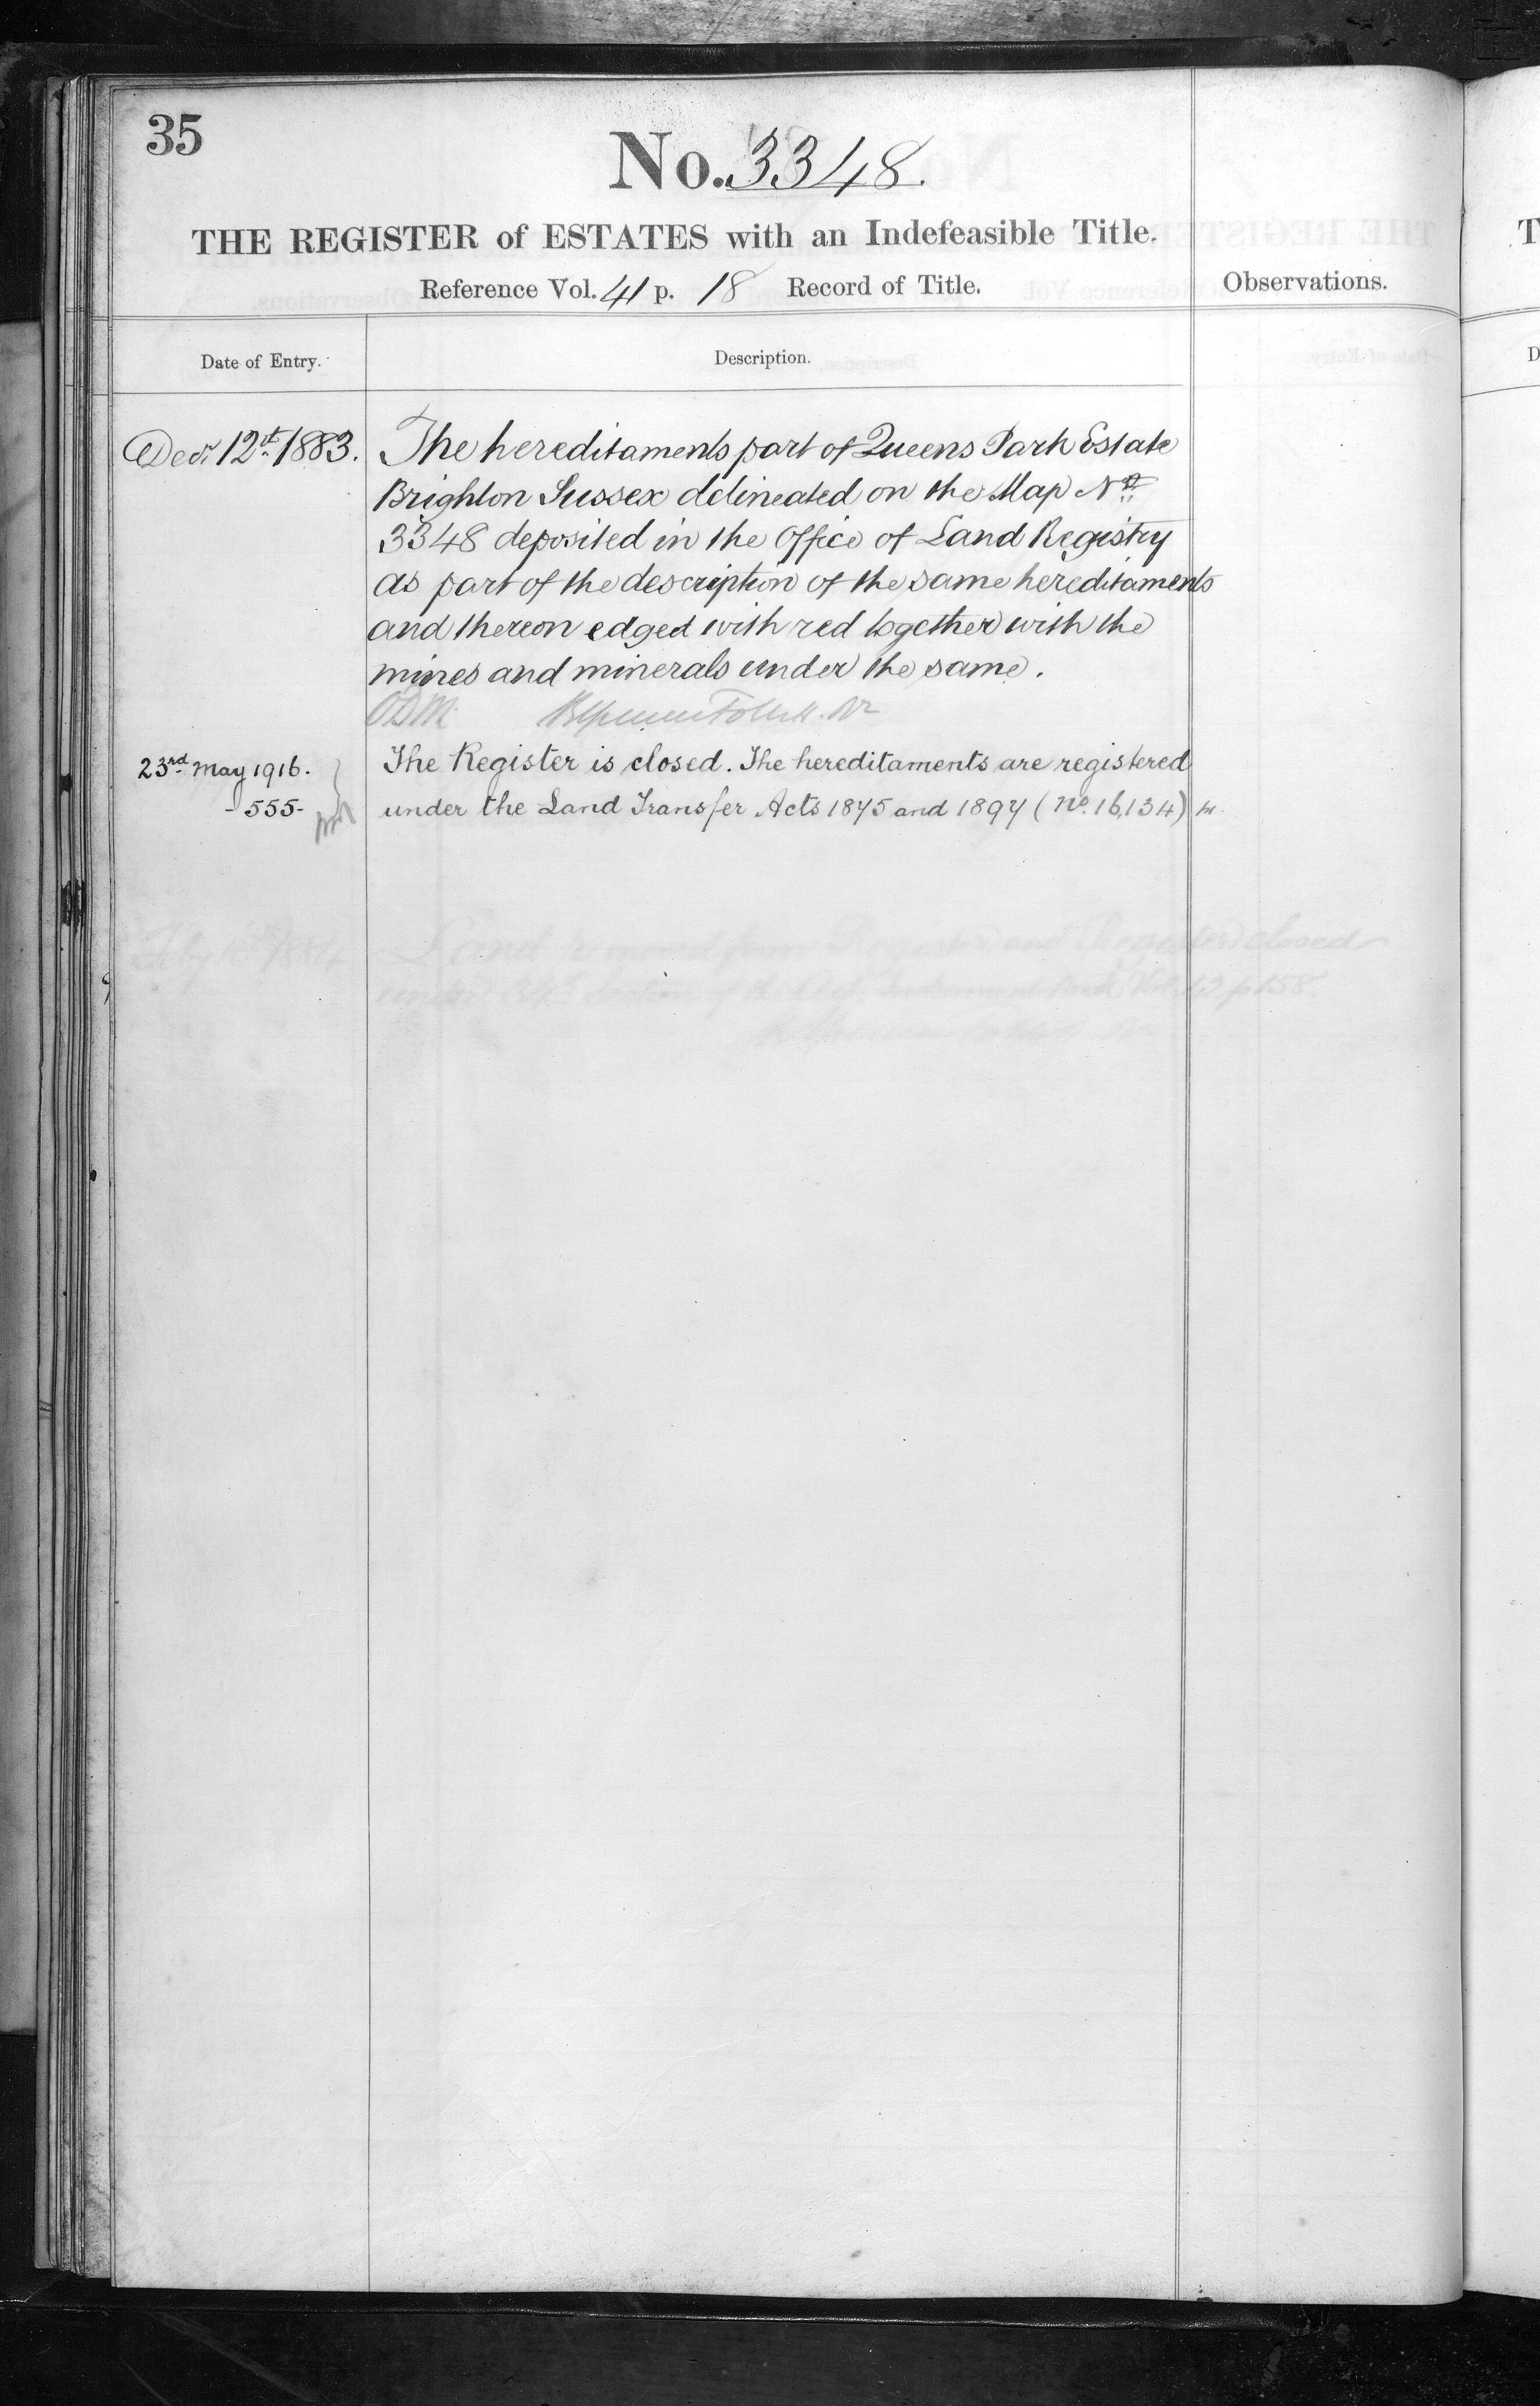 35
No. 3348.
THE REGISTER of ESTATES with an Indefeasible Title.
Reference Vol. 41 p. 18 Record of Title.
Observations.
Date of Entry.
Description.
Decr. 12th. 1883.
The hereditaments part of Queens Park Estate
Brighton Sussex delineated on the Map No.
3348 deposited in the Office of Land Registry
as part of the description of the same hereditaments
and thereon edged with red together with the
mines and minerals under the same.
23rd. May 1916.
- 555 -
The Register is closed. The hereditaments are registered
under the Land Transfer Acts 1875 and 1897 (No. 16,134)
Land removed from Register and Register closed